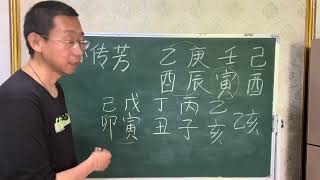 传芳 乙 庚 壬 己
酉 辰 寅 酉
己 戊 丁 丙 乙
卯 寅 丑 子 亥
乙亥